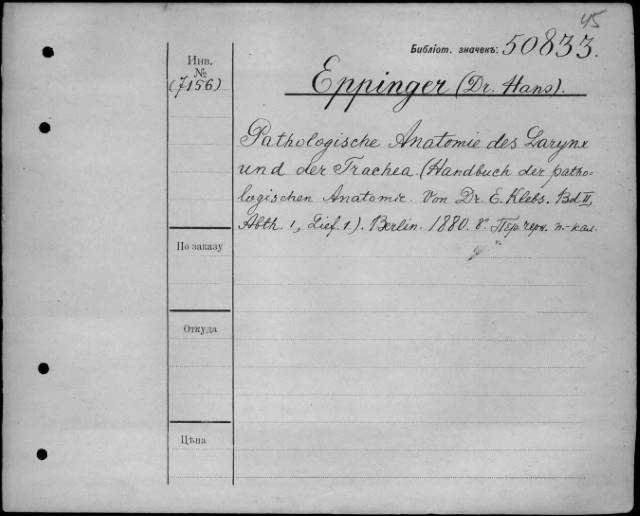 45
Библіот. значекъ: 50833.
Инв.
№
(7156)
Eppinger (Dr. Hans).
Pathologische Anatomie des Larynx
und der Trachea. (Handbuch der patho-
logischen Anatomie. Von Dr. E. Klebs. Bd II,
Abth. 1, Lief. 1.). Berlin. 1880. 8°. Пер. черн. п.-кал.
По заказу
Откуда
Цѣна